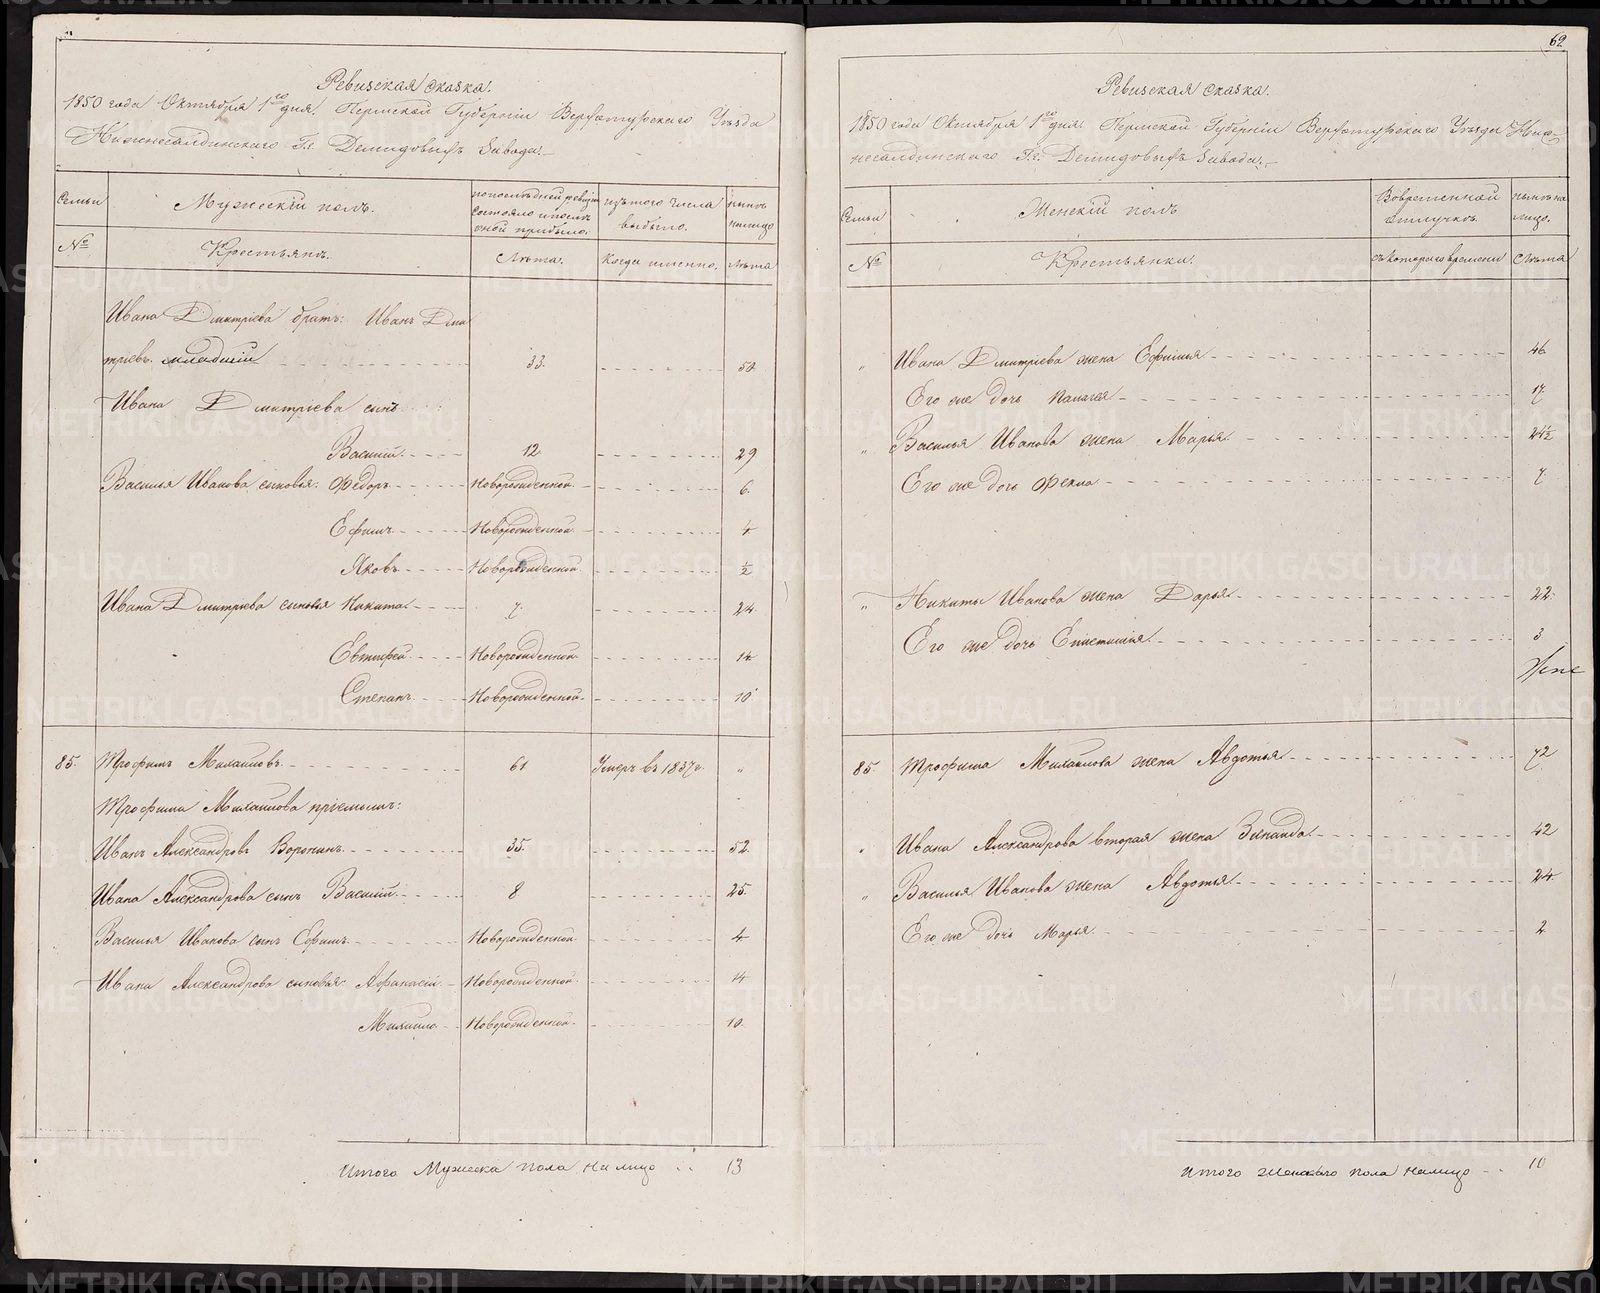 Ревизская сказка.
1850 года Октября 1го дня. Пермской Губерніи Верхотурскаго Уѣзда
Нижнесалдинскаго Г.г. Демидовыхъ Завода.
Семьи
Мужескій полъ.
по послѣдней ревизіи состояло и послѣ оной прибыло.
изъ того числа выбыло.
нынѣ налицо
№
Крестьянъ.
Лѣта.
Когда именно.
Лѣта
Ивана Дмитріева братъ: Иванъ Дми
тріевъ младшій 33. 50
Ивана Дмитріева сынъ
Василій. 12 29
Василья Иванова сыновья: Федоръ Новорожденной 6.
Ефимъ Новорожденной 4
Яковъ Новорожденной ½
Ивана Дмитріева сыновья Никита 7. 24
Евтифей Новорожденной 14
Степанъ Новорожденной 10
85. Трофимъ Михайловъ 61 Умеръ въ 1837г. „
Трофима Михайлова пріемышъ:
Иванъ Александровъ Воронинъ 35. 52
Ивана Александрова сынъ Василій 8 25
Василья Иванова сынъ Ефимъ Новорожденной 4
Ивана Александрова сыновья: Афанасій Новорожденной 14
Михайло Новорожденной 10.
Итого Мужеска пола налицо 13
62
Ревизская сказка.
1850 года Октября 1го дня. Пермской Губерніи Верхотурскаго Уѣзда Ниж-
несалдинскаго Г.г. Демидовыхъ Завода.
Семьи
Женскій полъ
Во временной отлучкѣ.
нынѣ на лицо.
№
Крестьянки.
съ котораго времени
Лѣта
„ Ивана Дмитріева жена Ефимья 46
Его же дочь Палагея 17
„ Василья Иванова жена Марья 24½
Его же дочь Фекла 7
„ Никиты Иванова жена Дарья 22
Его же дочь Епистимія 3
85. Трофима Михайлова жена Авдотья 72
„ Ивана Александрова вторая жена Зинаида 42
„ Василья Иванова жена Авдотья 24
Его же дочь Марья 2
Итого женскаго пола налицо 10
METRIKI.GASO-URAL.RU